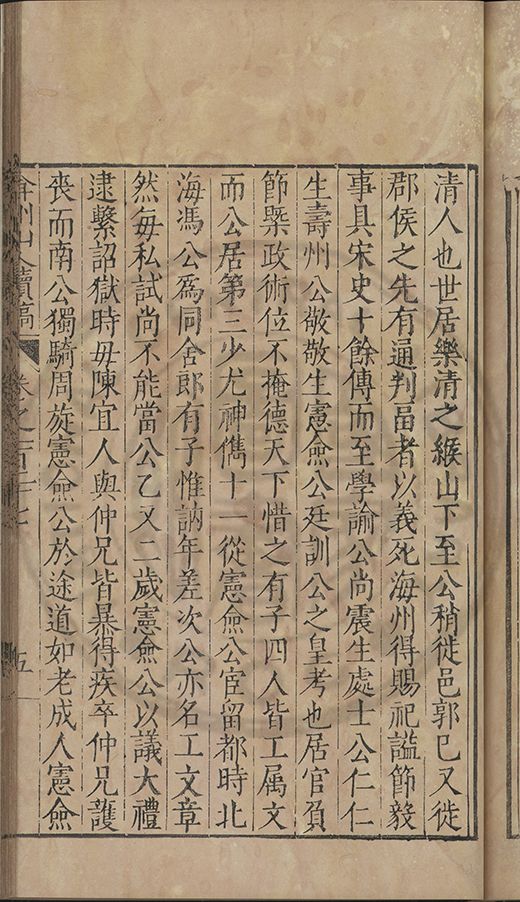 清人也世居樂清之緱山下至公稍徙邑郭已又徙
郡侯之先有通判畐者以義死海州得賜祀謚節毅
事具宋史十餘傳而至學諭公尚震生處士公仁仁
生壽州公敬敬生憲僉公廷訓公之皇考也居官負
節槩政術位不掩德天下惜之有子四人皆工属文
而公居第三少尤神儁十一從憲僉公宦留都時北
海馮公爲同舍郎有子惟訥年差次公亦名工文章
然每私試尚不能當公乙又二歲憲僉公以議大禮
逮繫詔獄時毋陳宜人與仲兄皆暴得疾卒仲兄護
喪而南公獨騎周旋憲僉公於途道如老成人憲僉
弇州山人續稿 卷之一百三十七 五